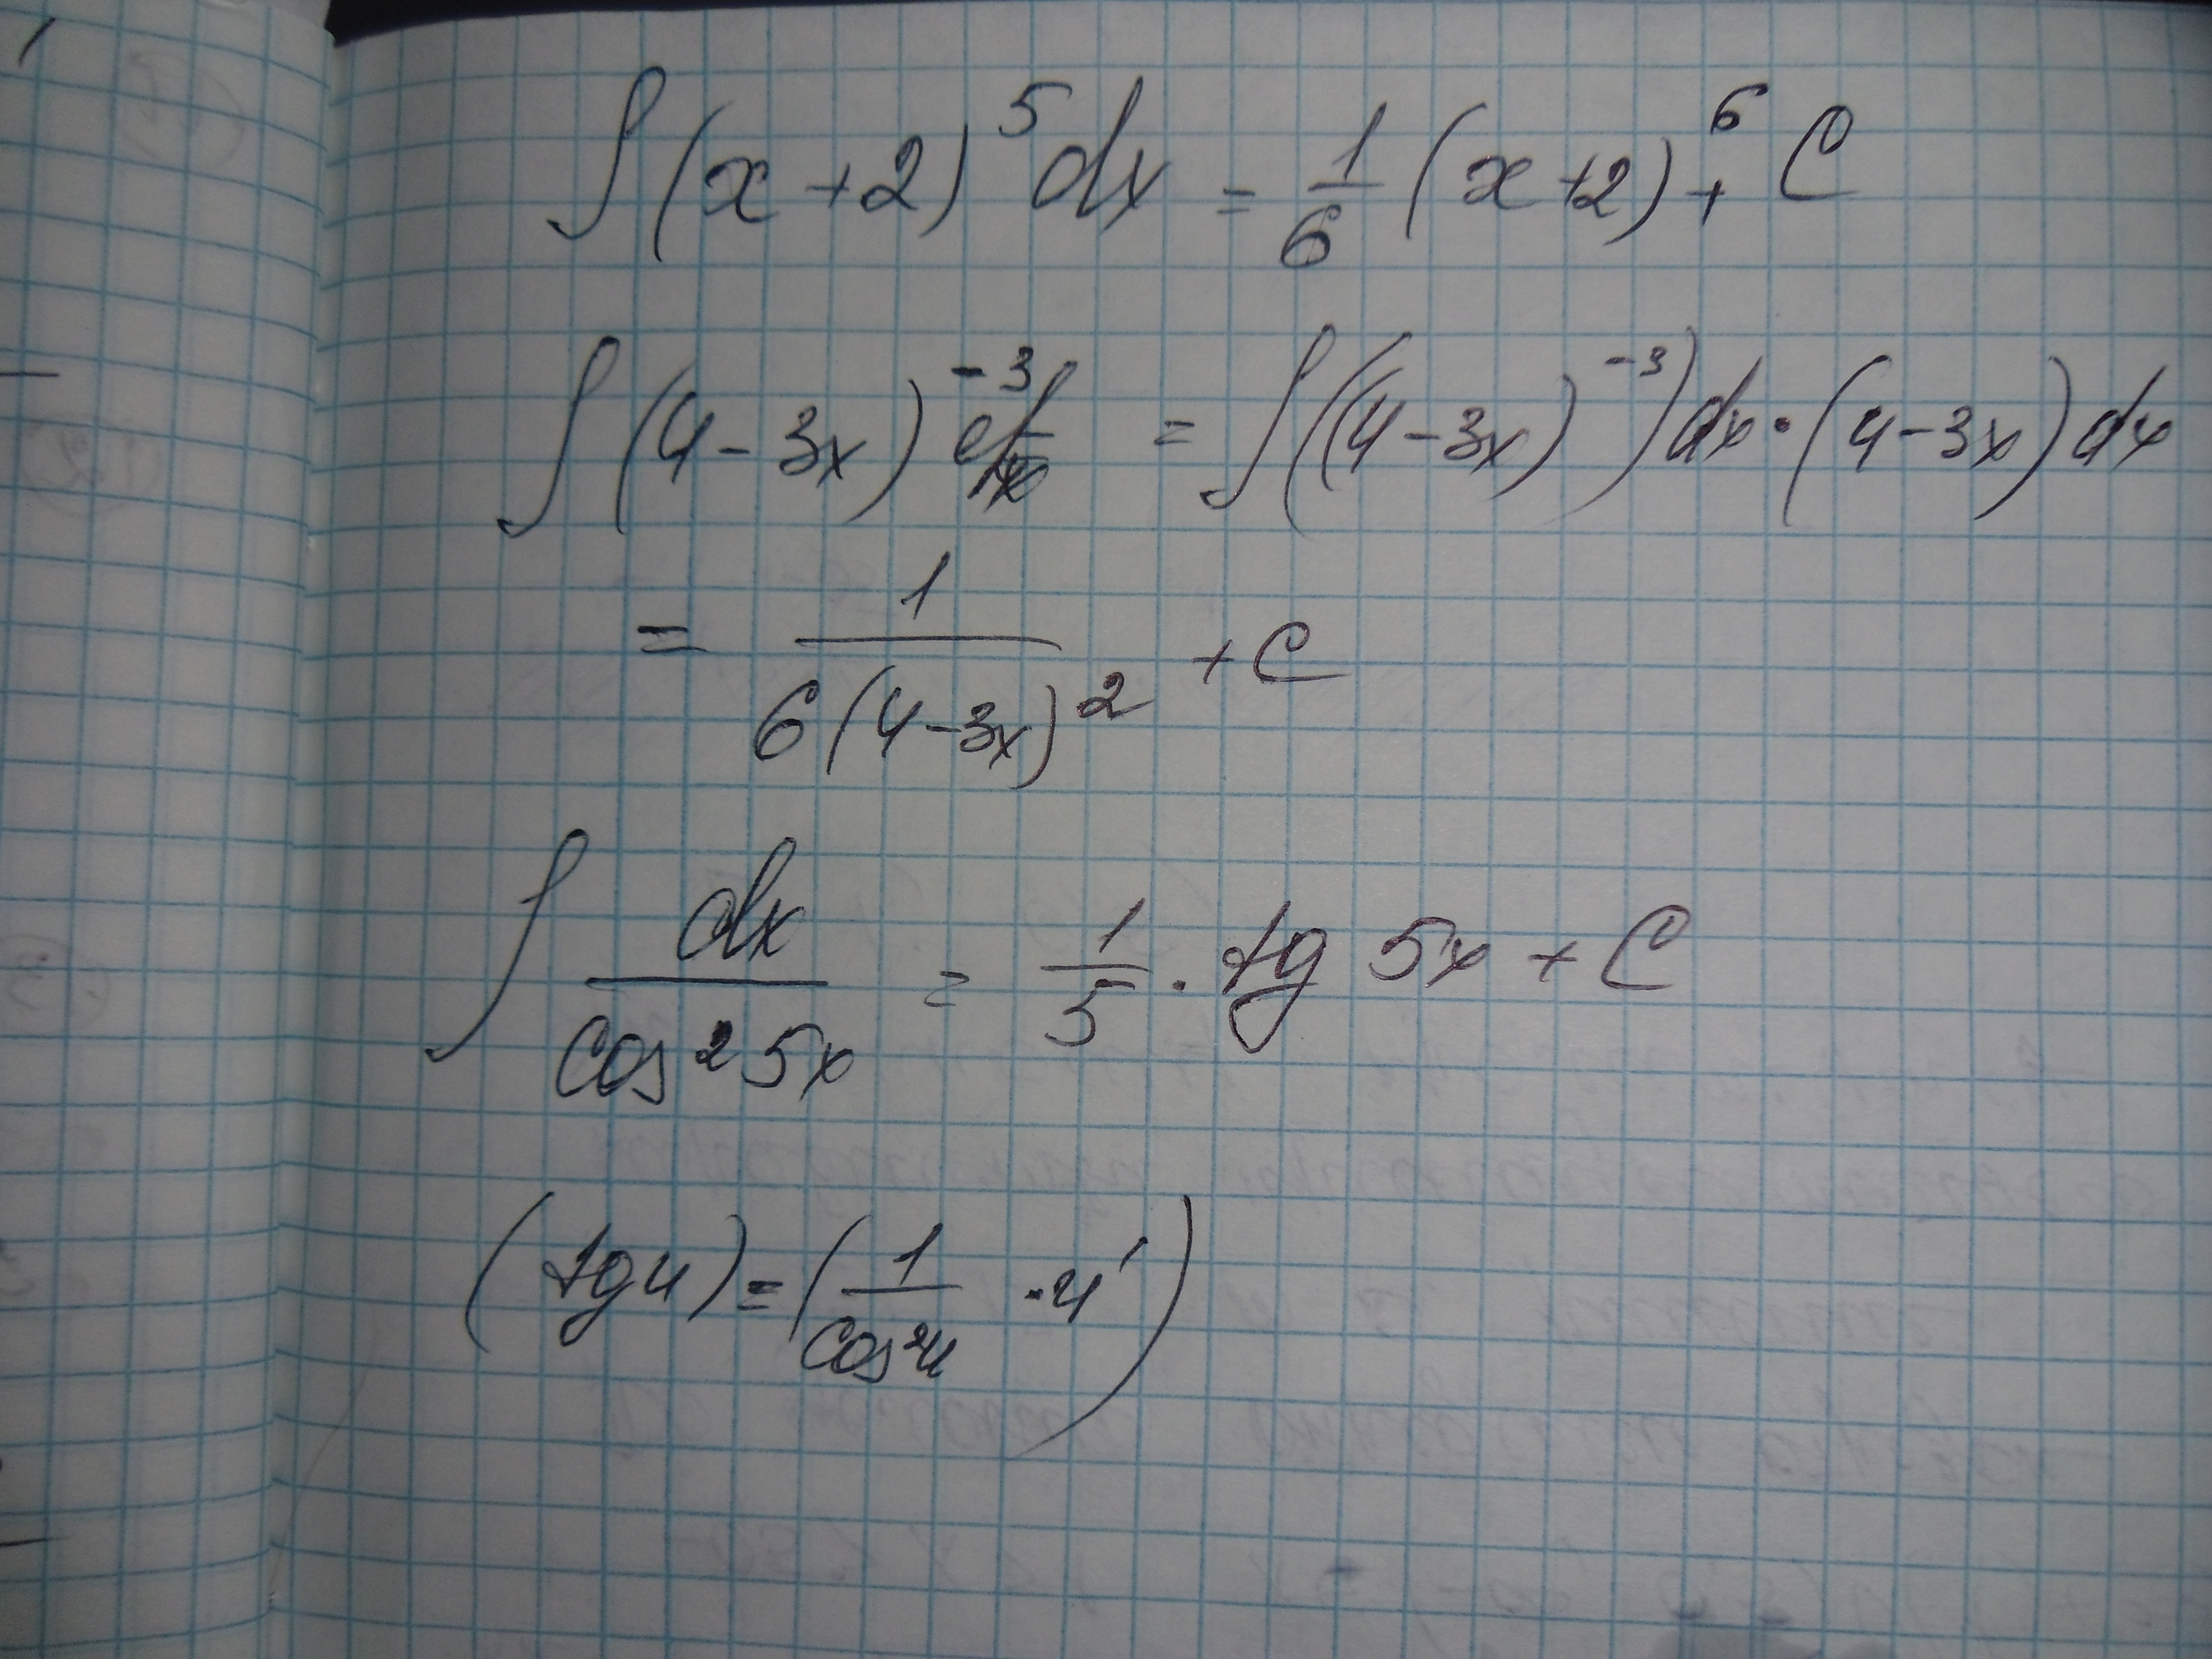 ∫(x+2)⁵dx = 1/6 (x+2)⁶ + C
∫(4-3x)⁻³dx = ∫((4-3x)⁻³)dx·(4-3x)dx
= 1/(6(4-3x)²) + C
∫ dx/(cos² 5x) = 1/5 · tg 5x + C
(tg u) = (1/(cos²u) · u′)